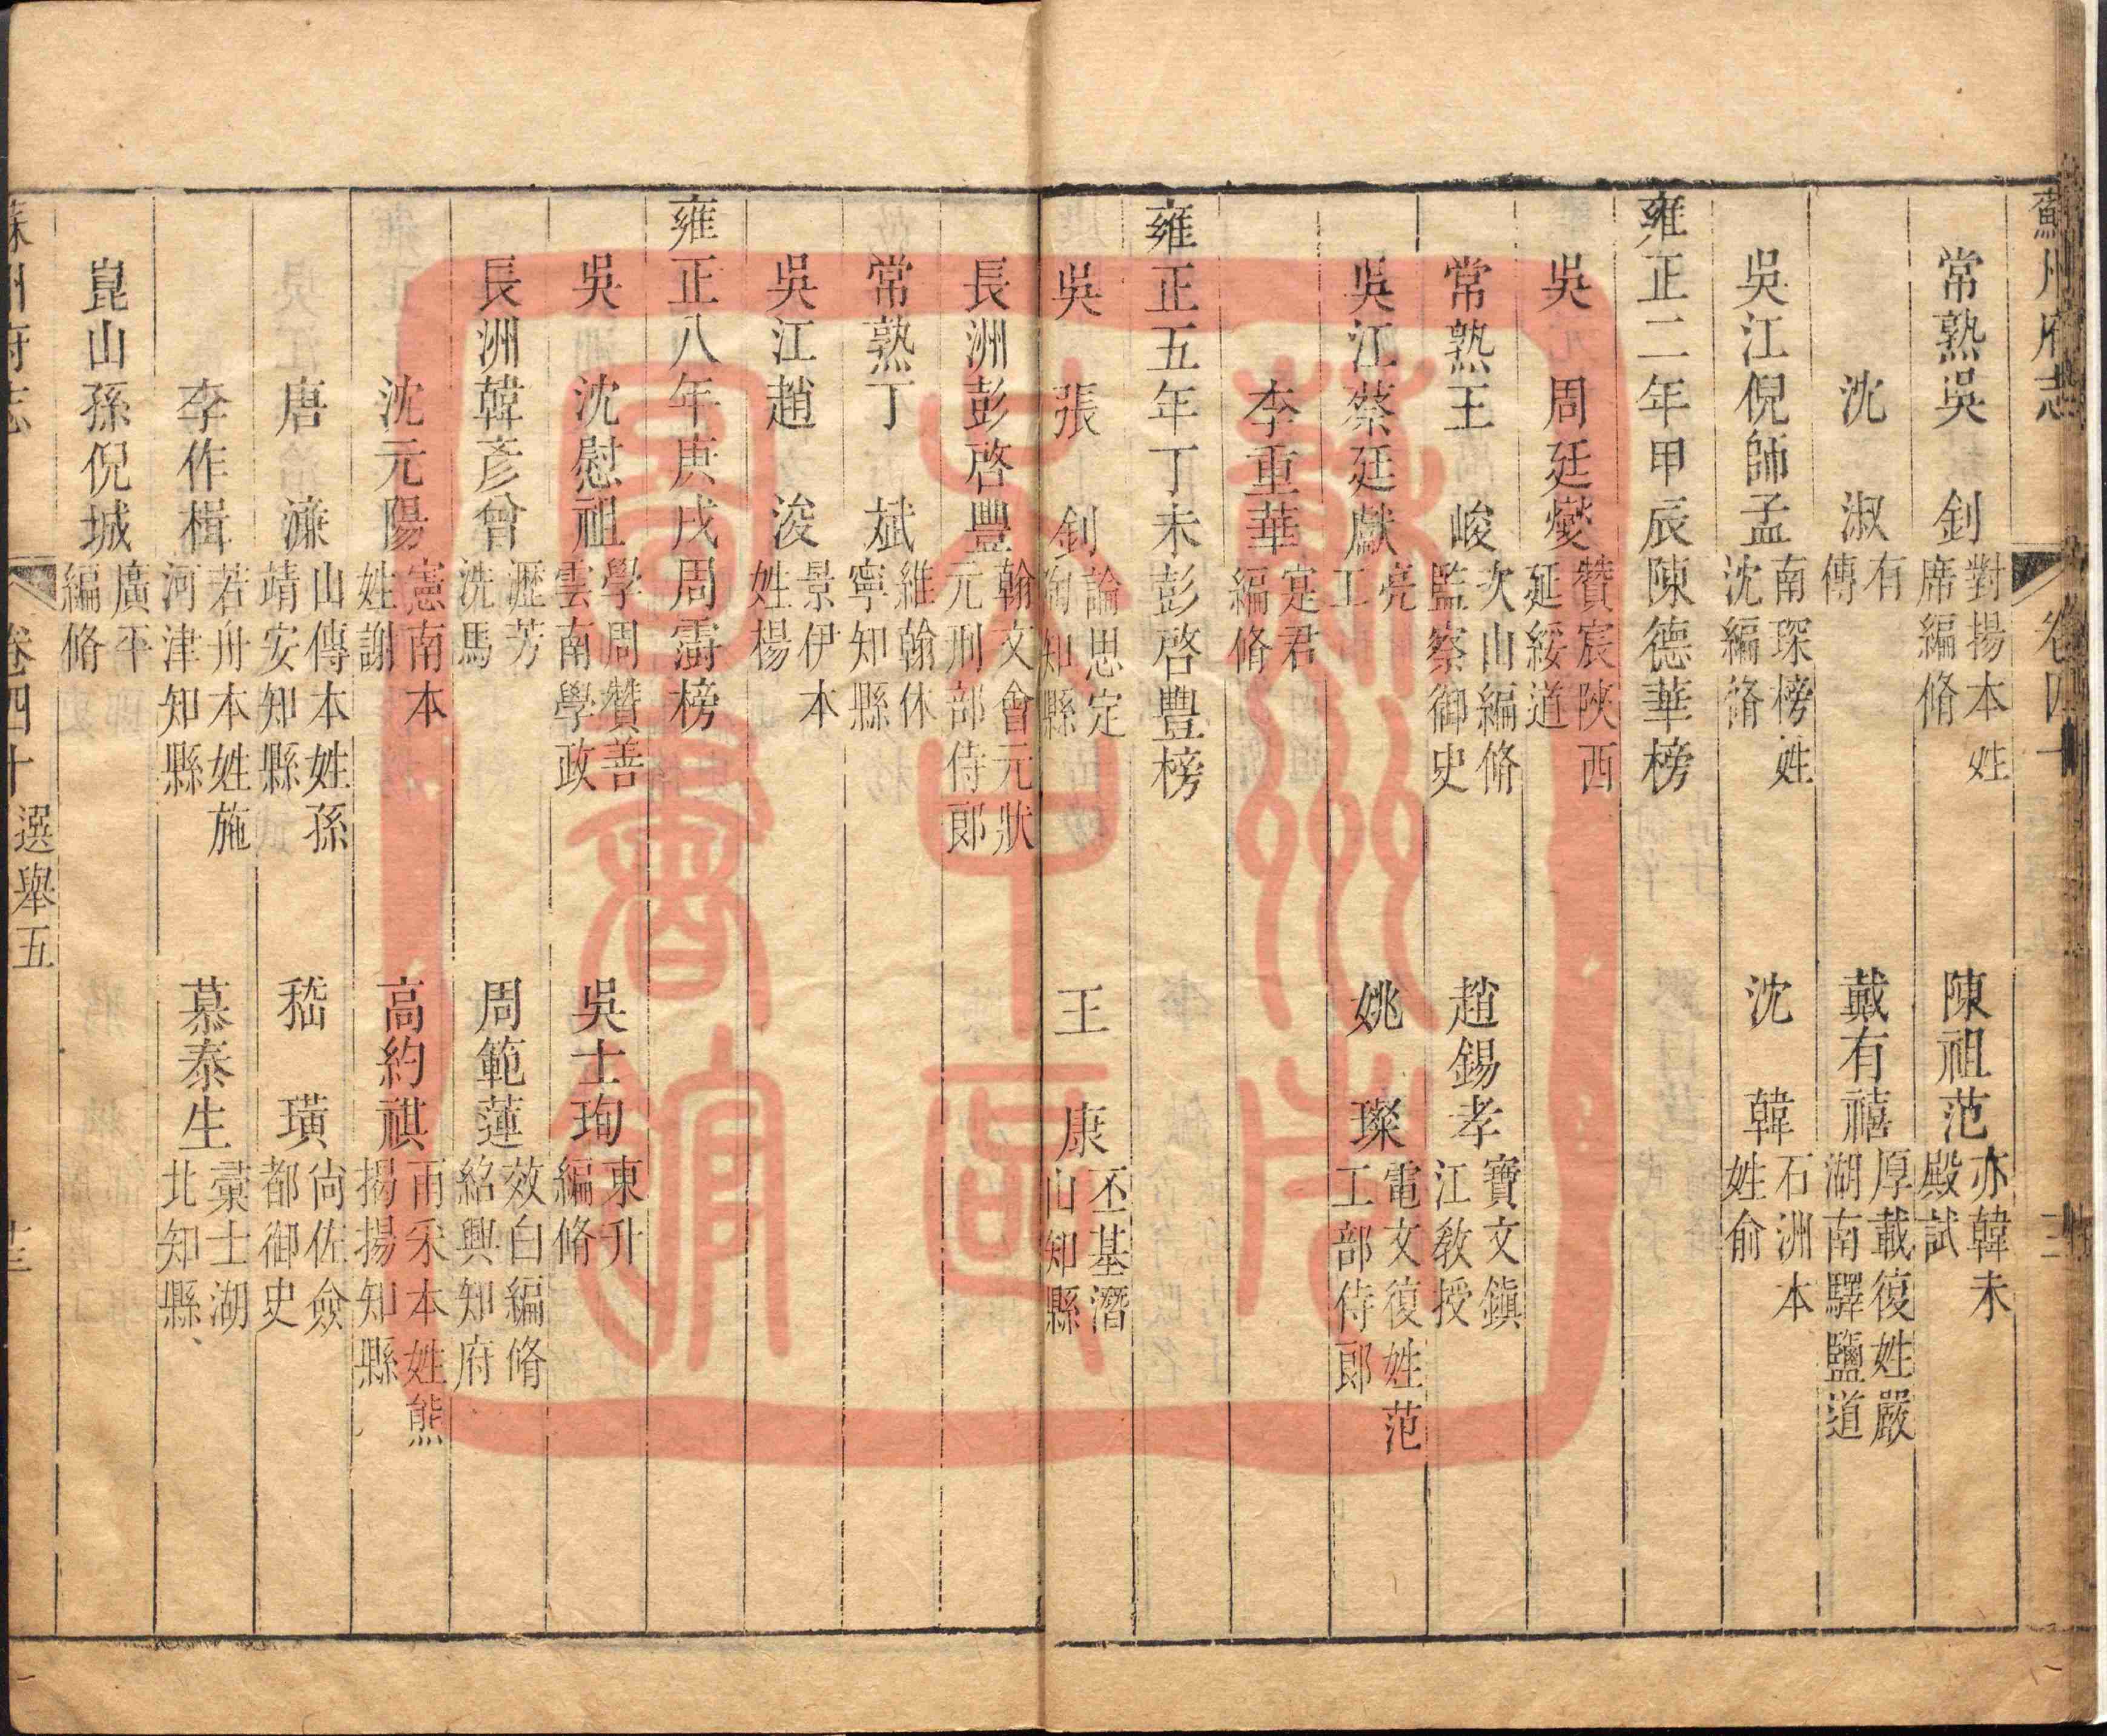 蘇州府志 卷四十
常熟吳 釗 對揚本姓席編脩 陳祖范 亦韓未殿試
沈 淑 有傳 戴有禧 厚載復姓嚴湖南驛鹽道
吳江倪師孟 南琛榜姓沈編脩 沈 韓 石洲本姓俞
雍正二年甲辰陳德華榜
吳 周廷燮 贊宸陝西延綏道
常熟王 峻 次山編脩監察御史 趙錫孝 寶文鎮江教授
吳江蔡廷獻 亮工 姚 璨 電文復姓范工部侍郎
李重華 寔君編脩
雍正五年丁未彭啓豐榜
吳 張 釗 論思定陶知縣 王 康 丕基潛山知縣
長洲彭啓豐 翰文會元狀元刑部侍郎
常熟丁 斌 維翰休寧知縣
吳江趙 浚 景伊本姓楊
雍正八年庚戌周澍榜
吳 沈慰祖 學周贊善雲南學政 吳士珣 東升編脩
長洲韓彥曾 瀝芳洗馬 周範蓮 效白編脩紹興知府
沈元陽 憲南本姓謝 高約祺 甫采本姓熊揭揚知縣
唐 濂 山傳本姓孫靖安知縣 嵇 璜 尚佐僉都御史
李作楫 若舟本姓施河津知縣 慕泰生 彙士湖北知縣
崑山孫倪城 廣平編脩
蘇州府志 卷四十 選舉五
蘇州市中區圖書館